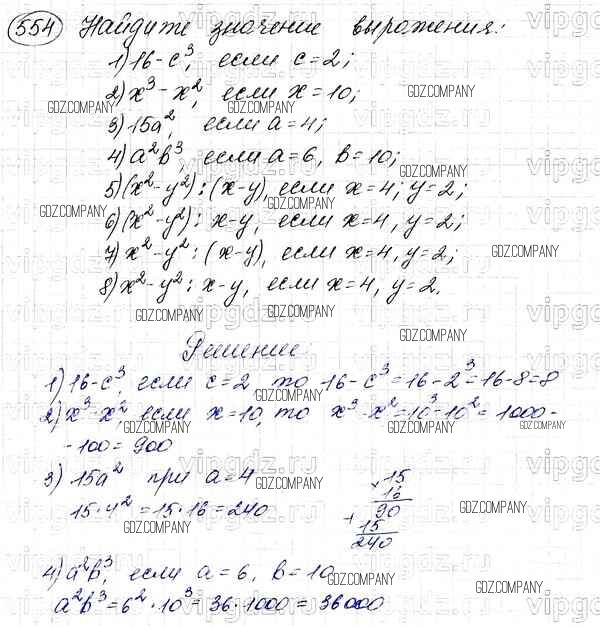 554 Найдите значение выражения:
1) 16-c³, если c=2;
2) x³-x², если x=10;
3) 15a², если a=4;
4) a²b³, если a=6, b=10;
5) (x²-y²):(x-y), если x=4; y=2;
6) (x²-y²):x-y, если x=4, y=2;
7) x²-y²:(x-y), если x=4, y=2;
8) x²-y²:x-y, если x=4, y=2.
Решение:
1) 16-c³, если c=2, то 16-c³=16-2³=16-8=8
2) x³-x², если x=10, то x³-x²=10³-10²=1000-
-100=900
3) 15a² при a=4
15·4²=15·16=240
×15
16
90
+15
240
4) a²b³, если a=6, b=10
a²b³=6²·10³=36·1000=36000
GDZ.COMPANY
vipgdz.ru